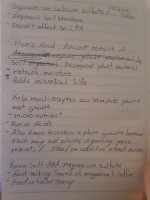 Gypsum or Calcium sulfate /
- improves soil structure
- Doesn't effect soil PH
Humic Acids: Ancient remains of
Decomposed plant material
retains moisture
Adds microbial life
Kelp meal: enzymes can stimulate plant
root growth
- micro-nutrient
- Amino Acids
- Also known to contain a plant growth hormone
that may aid plants in growing more
Epsom Salt - Aka magnesium sulfate
- Fast acting source of magnesium &
- Feed or foliar spray